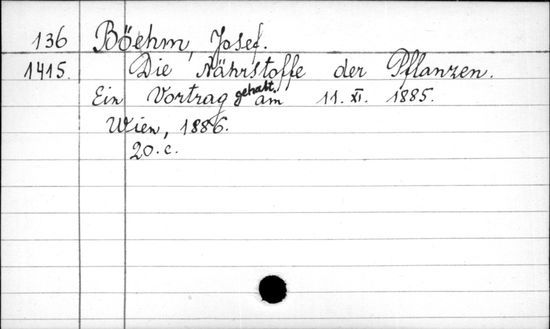 136 Böehm, Josef.
1415. Die Nährstoffe der Pflanzen.
Ein Vortrag gehalt. am 11. XI. 1885.
Wien, 1886.
20. c.